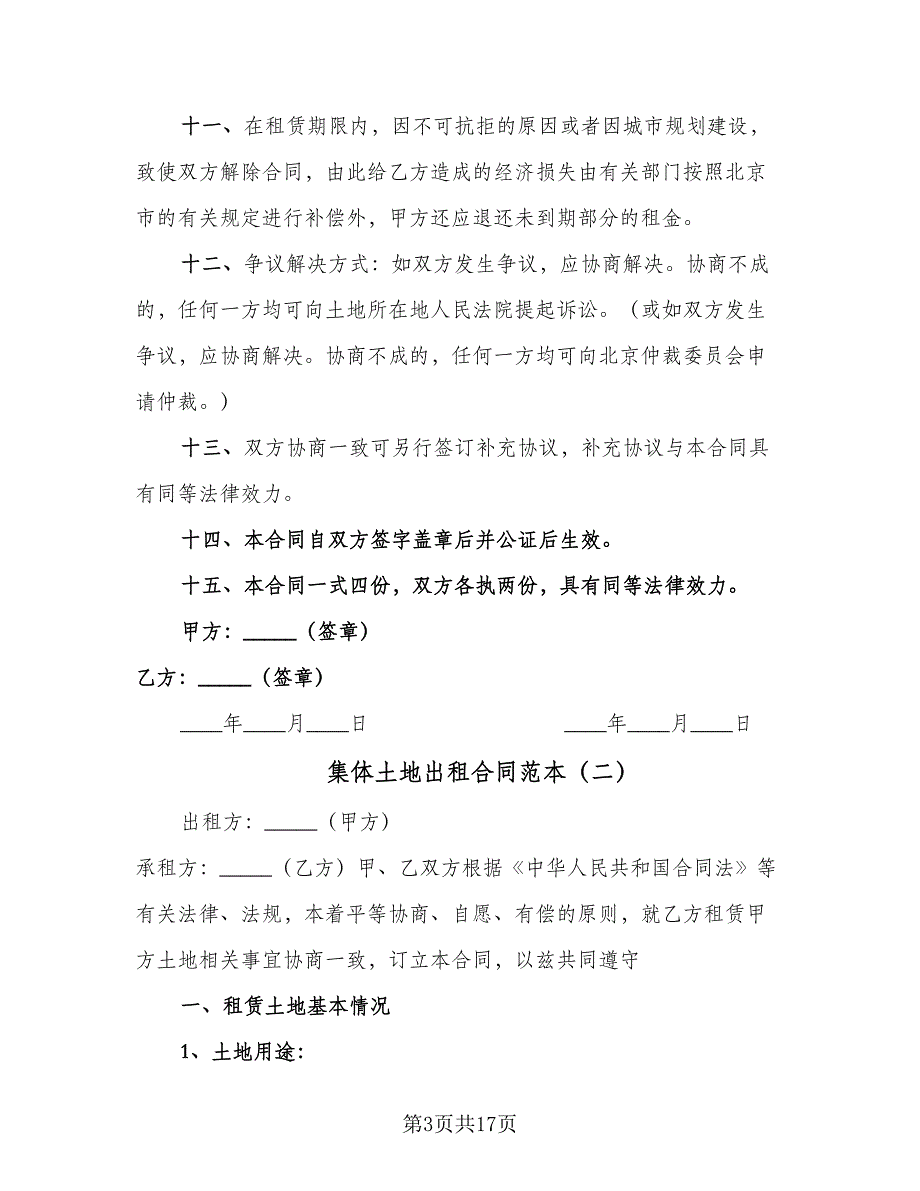 十一、在租赁期限内，因不可抗拒的原因或者因城市规划建设，
致使双方解除合同，由此给乙方造成的经济损失由有关部门按照北京
市的有关规定进行补偿外，甲方还应退还未到期部分的租金。
十二、争议解决方式：如双方发生争议，应协商解决。协商不成
的，任何一方均可向土地所在地人民法院提起诉讼。（或如双方发生
争议，应协商解决。协商不成的，任何一方均可向北京仲裁委员会申
请仲裁。）
十三、双方协商一致可另行签订补充协议，补充协议与本合同具
有同等法律效力。
十四、本合同自双方签字盖章后并公证后生效。
十五、本合同一式四份，双方各执两份，具有同等法律效力。
甲方：_____（签章）
乙方：_____（签章）
____年____月____日 ____年____月____日
集体土地出租合同范本（二）
出租方：_____（甲方）
承租方：_____（乙方）甲、乙双方根据《中华人民共和国合同法》等
有关法律、法规，本着平等协商、自愿、有偿的原则，就乙方租赁甲
方土地相关事宜协商一致，订立本合同，以兹共同遵守
一、租赁土地基本情况
1、土地用途：
第3页共17页